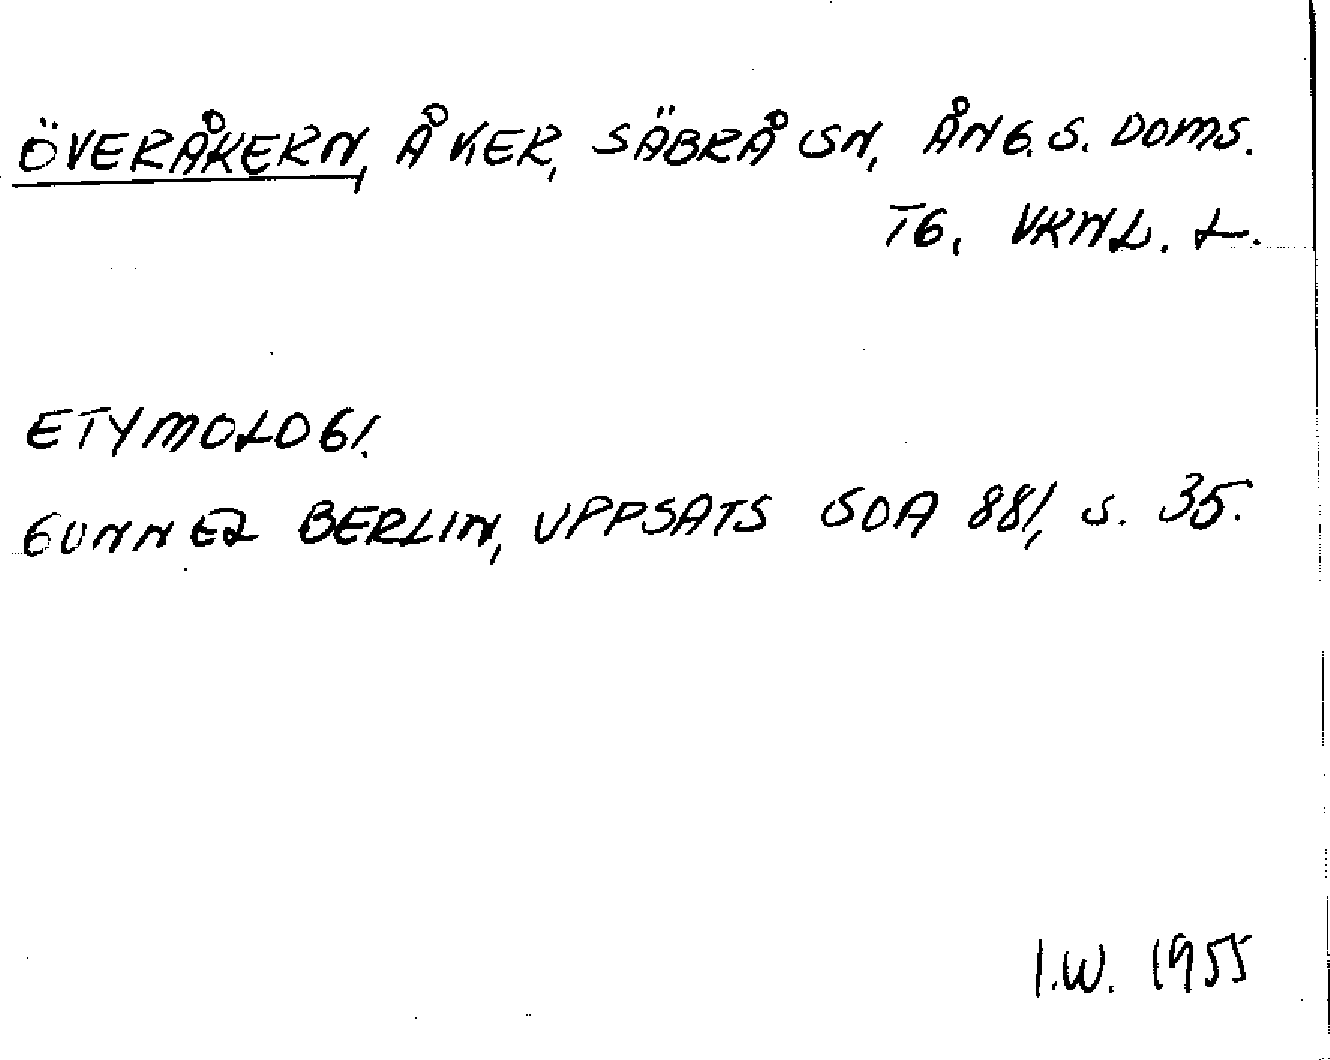 ÖVERÅKERN, ÅKER, SÄBRÅ SN, ÅNG. S. DOMS.
TG. VRNL. L.
ETYMOLOGI.
GUNNEL BERLIN, UPPSATS SOA 881, S. 35.
I.W. 1955